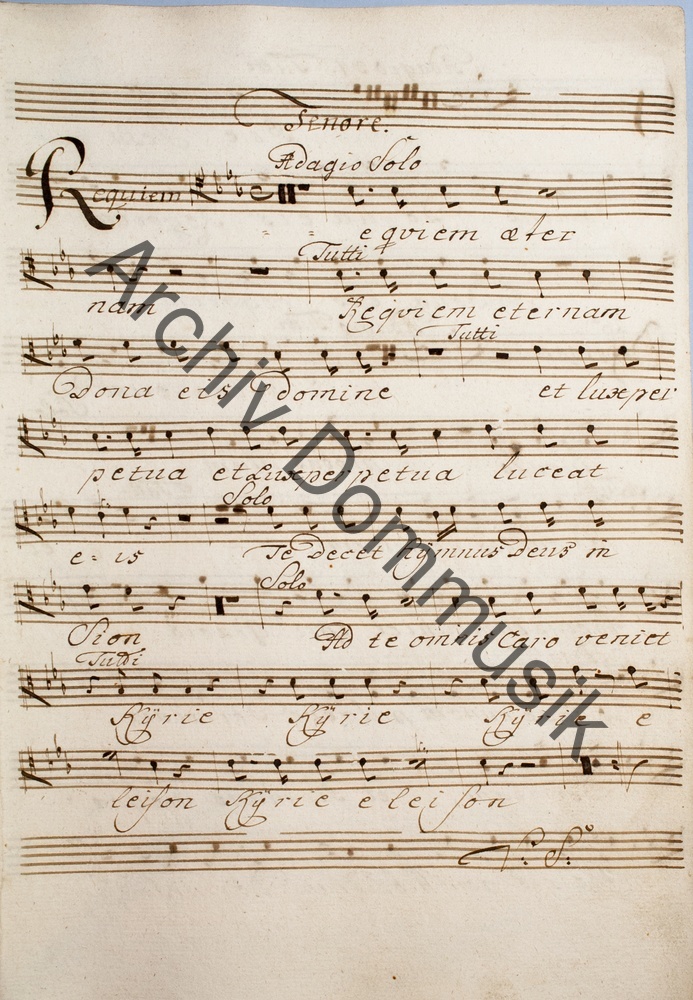 Tenore.
Adagio Solo
Requiem
e qviem æter
Tutti
nam Reqviem eternam
Tutti
Dona eis domine et luxper
petua et Luxperpetua luceat
Solo
e=is Te Decet hÿmnus Deus in
Solo
Sion Ad te omnis Caro veniet
Tutti
Kÿrie Kÿrie Kÿrie e
leison Kÿrie eleison
V: S:
Archiv Dommusik